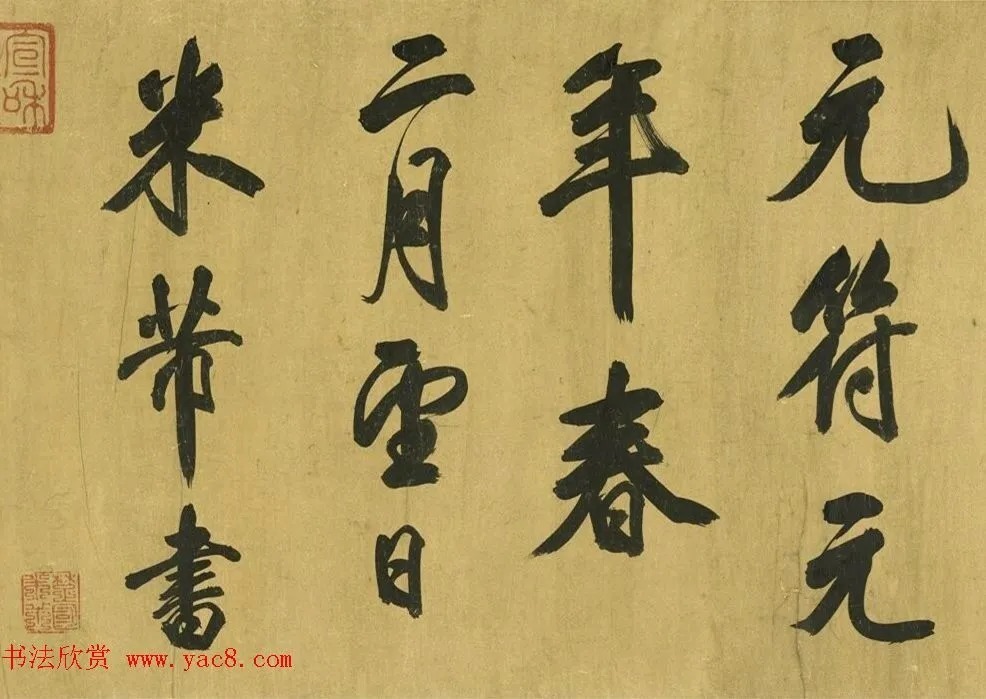 元符元
年春
二月望日
米芾書
宣和
书法欣赏 www.yac8.com